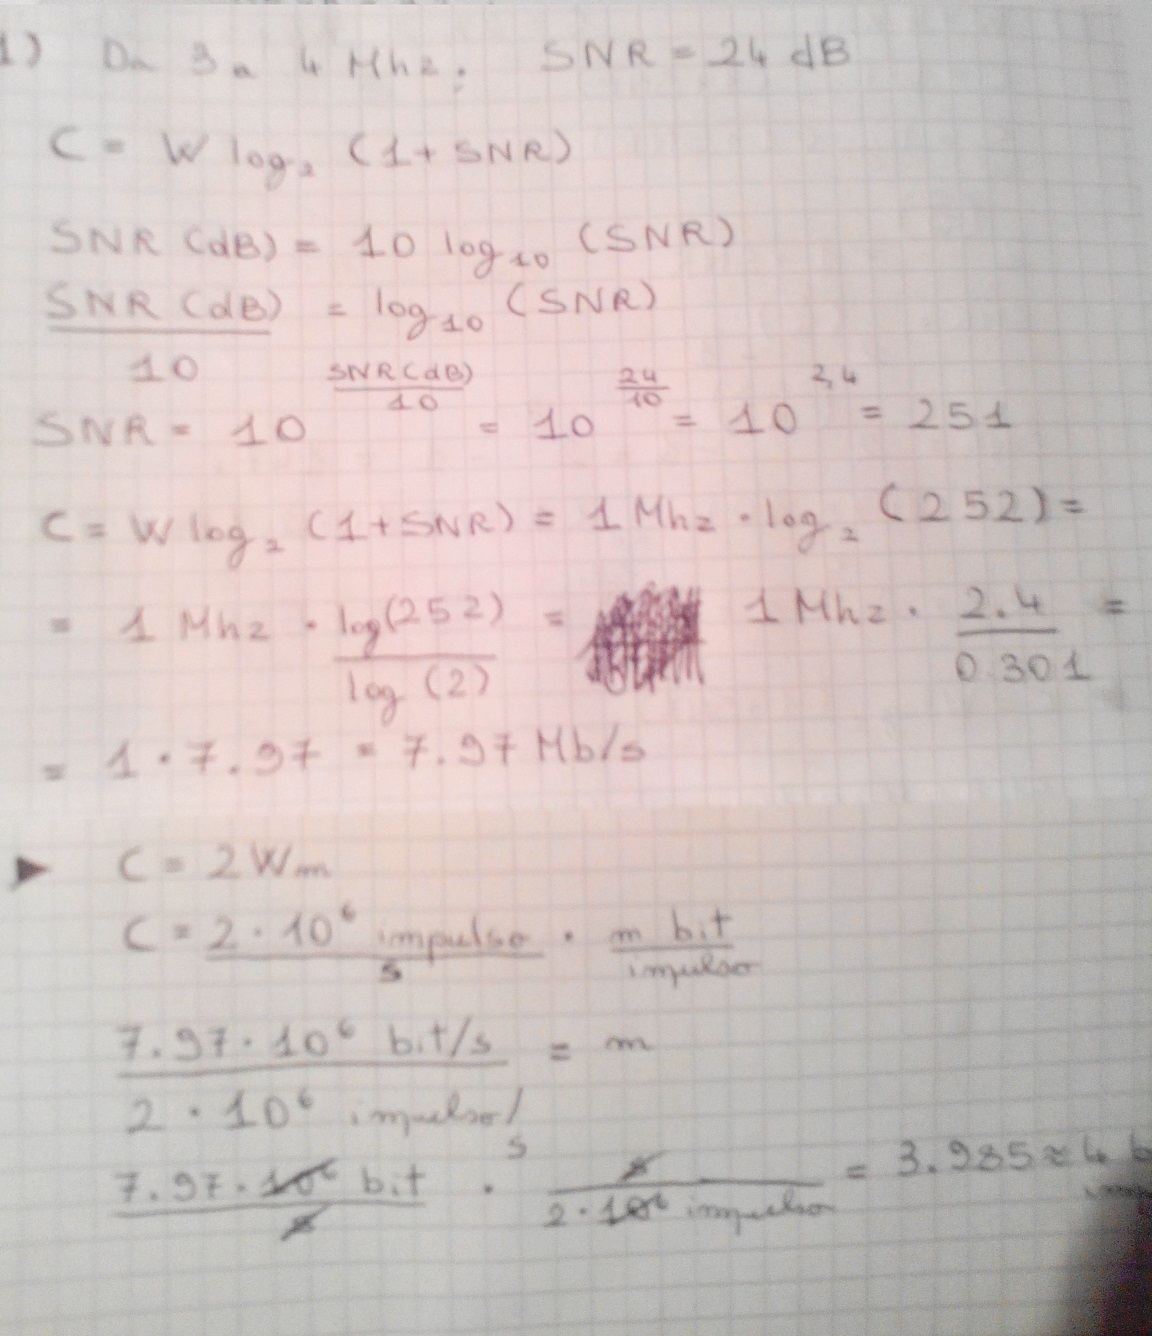 1) Da 3 a 4 Mhz. SNR = 24 dB
C = W log₂ (1+ SNR)
SNR (dB) = 10 log₁₀ (SNR)
SNR (dB) / 10 = log₁₀ (SNR)
SNR = 10^(SNR(dB)/10) = 10^(24/10) = 10^2,4 = 251
C = W log₂ (1+SNR) = 1 Mhz · log₂ (252) =
= 1 Mhz · log(252) / log (2) = 1 Mhz · 2.4 / 0.301 =
= 1 · 7.97 = 7.97 Mb/s
▶ C = 2Wm
C = 2 · 10⁶ impulso / s · m bit / impulso
7.97 · 10⁶ bit/s / 2 · 10⁶ impulso/s = m
7.97 · 10⁶ bit / s · s / 2 · 10⁶ impulso = 3.985 ≈ 4 b